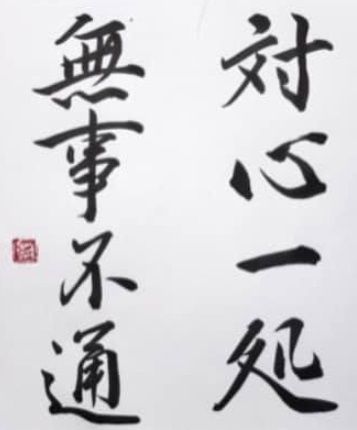 対心一処
無事不通